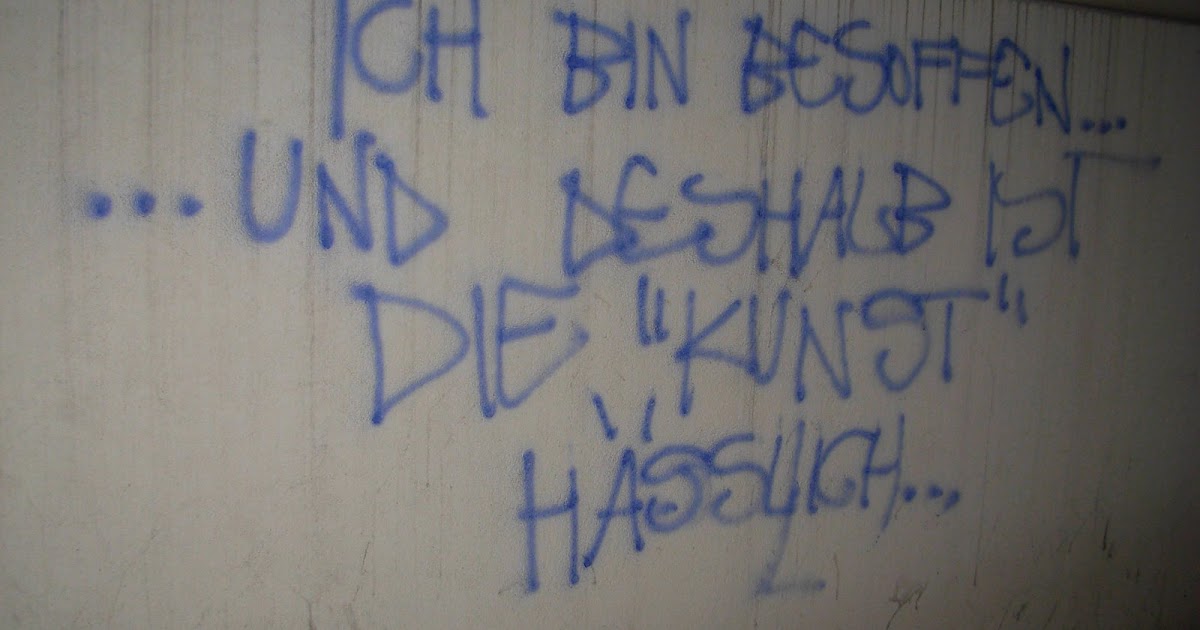 ICH BIN BESOFFEN...
...UND DESHALB IST
DIE "KUNST"
HÄSSLICH...